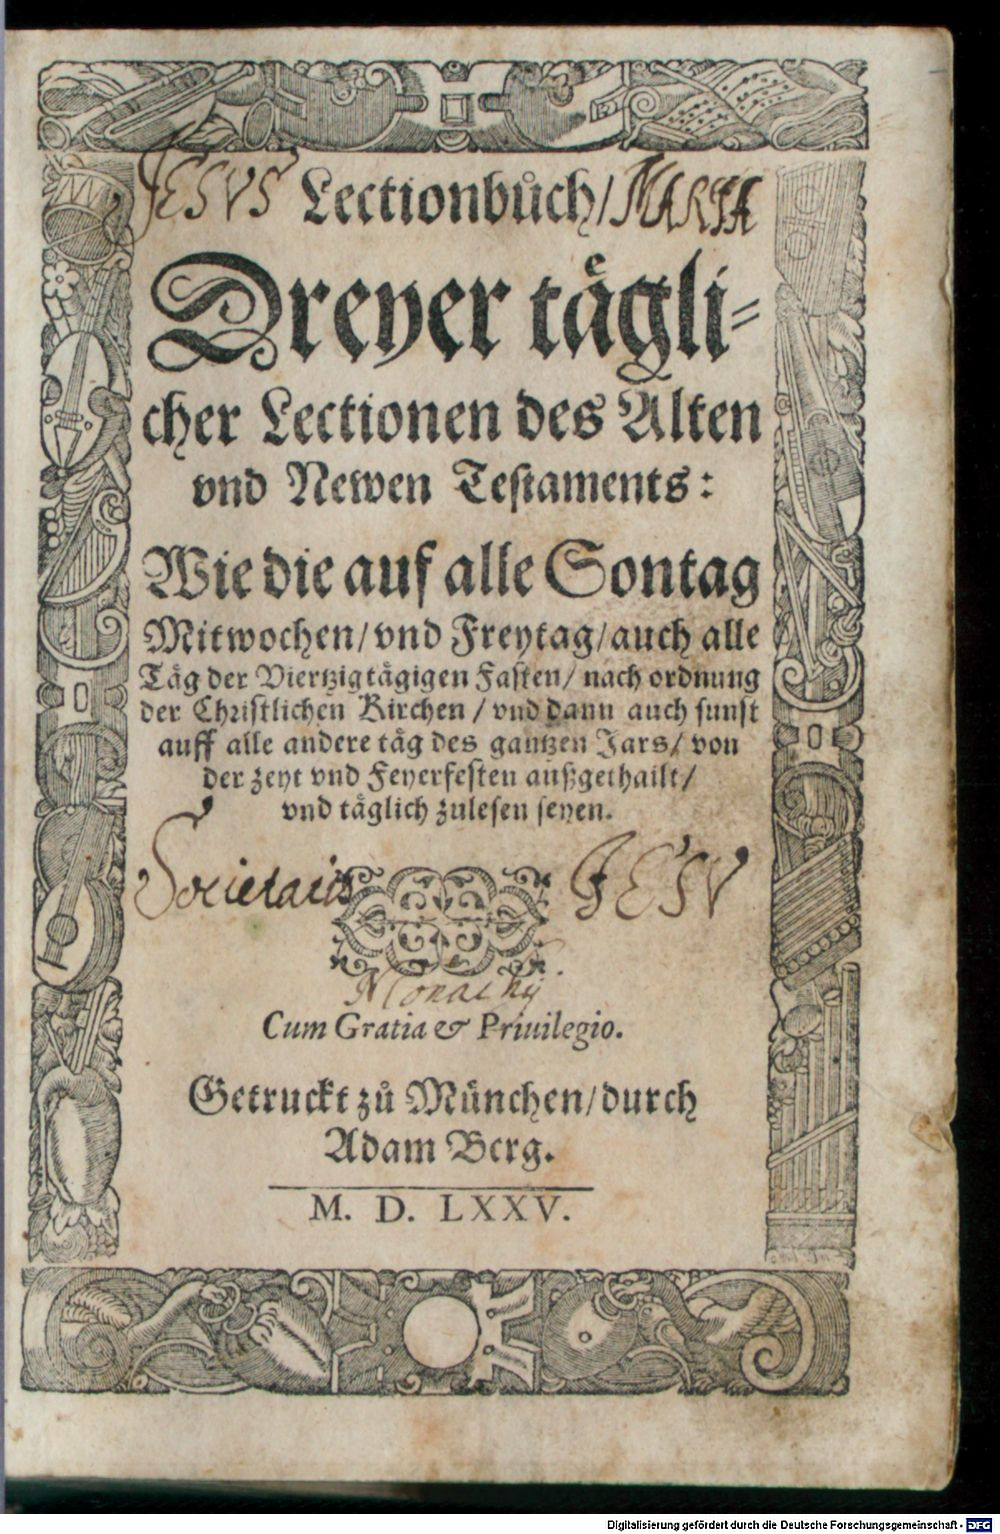 JESVS Lectionbuͦch/ MARIA
Dreyer taͤgli-
cher Lectionen des Alten
vnd Newen Testaments:
Wie die auf alle Sontag
Mitwochen/ vnd Freytag/ auch alle
Täg der Viertzigtägigen Fasten/ nach ordnung
der Christlichen Kirchen / vnd dann auch sunst
auff alle andere täg des gantzen Jars/ von
der zeyt vnd Feyerfesten außgethailt/
vnd täglich zulesen seyen.
Societatis JESV
Monachij
Cum Gratia & Priuilegio.
Getruckt zuͦ München/ durch
Adam Berg.
M. D. LXXV.
Digitalisierung gefördert durch die Deutsche Forschungsgemeinschaft - DFG